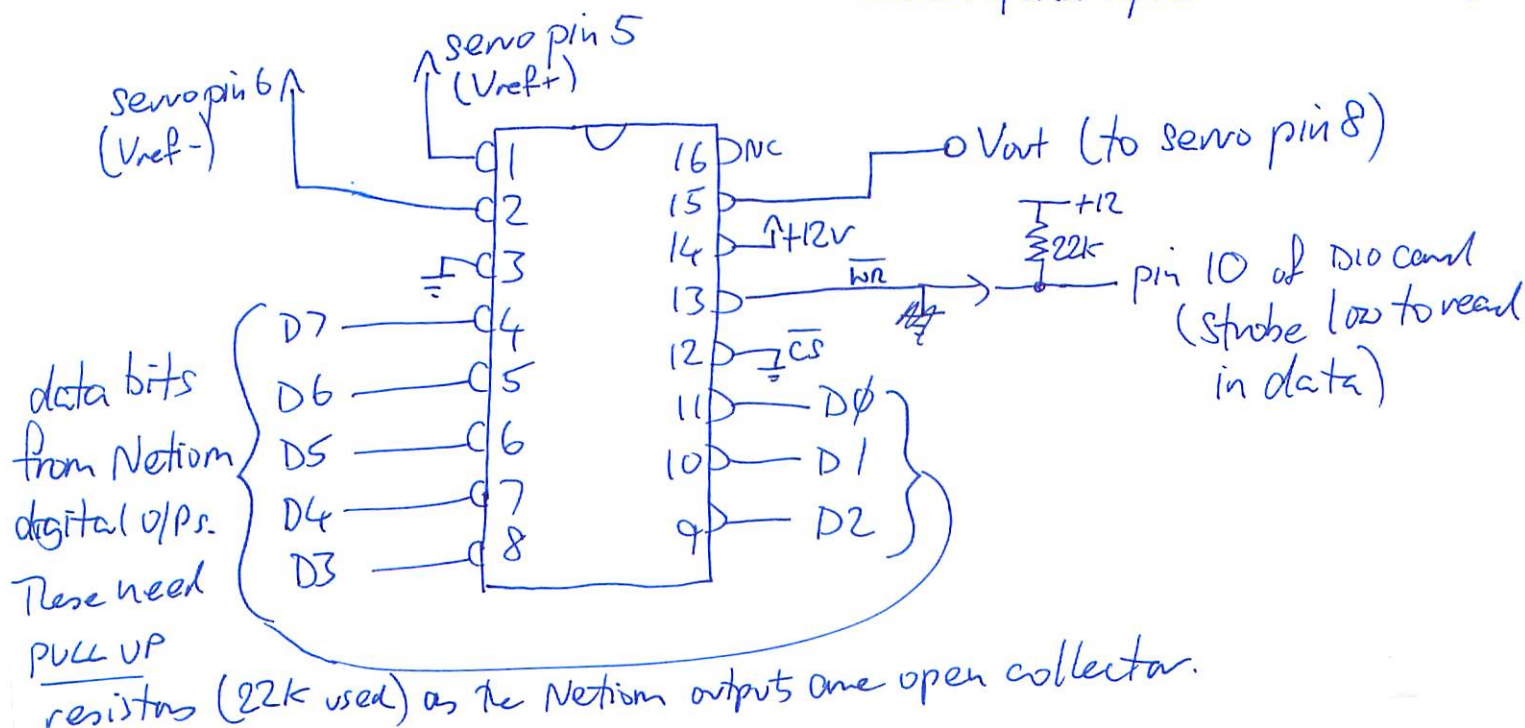 servo pin 5
(Vref+)
servo pin 6
(Vref-)
1
2
3
4
5
6
7
8
16 NC
15
14 +12V
13 W̅R̅
12 C̅S̅
11 DØ
10 D1
9 D2
D7
D6
D5
D4
D3
Vout (to servo pin 8)
+12
22k
pin 10 of DIO card
(strobe low to read
in data)
data bits
from Netiom
digital O/Ps.
These need
PULL UP
resistors (22k used) as the Netiom outputs are open collector.